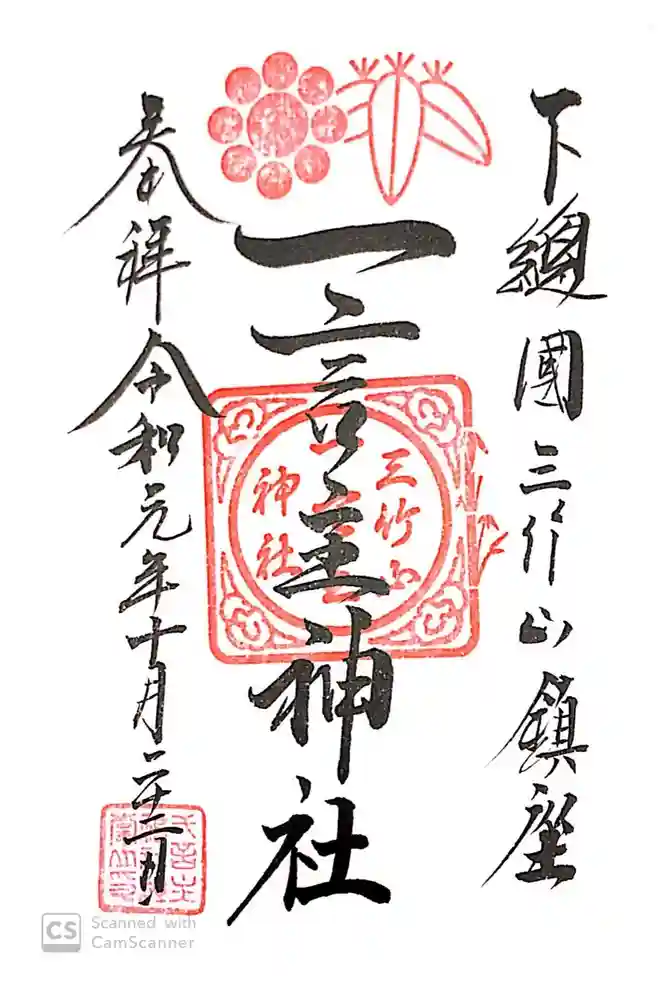 下總國三竹山鎮座
一言主神社
三竹山
神社
奉拝 令和元年十月二十二日
CS Scanned with
CamScanner